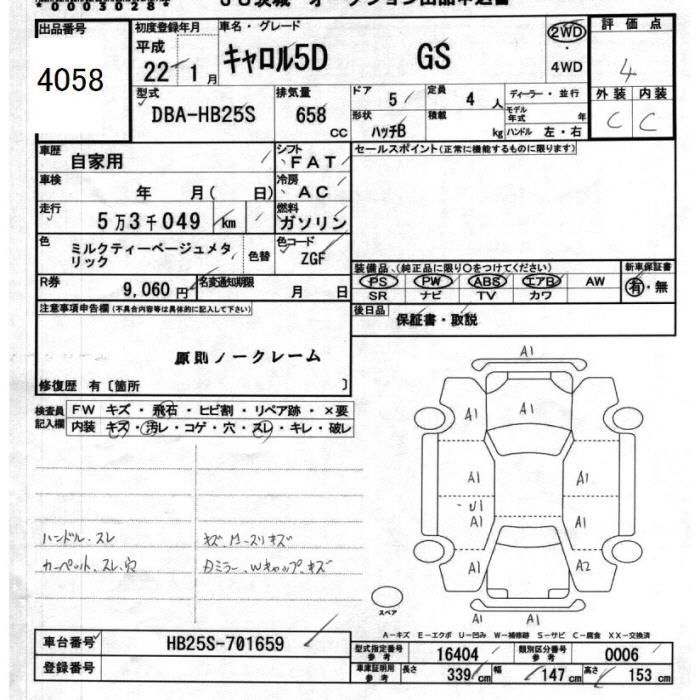 出品番号
4058
初度登録年月
平成
22年 1月
車名・グレード
キャロル5D GS
2WD
・
4WD
評価点
4
外装 内装
C C
型式
DBA-HB25S
排気量
658 CC
ドア 5
定員 4 人
形状 ハッチB
積載 kg
ディーラー・並行
モデル年式 年
ハンドル 左・右
車歴
自家用
シフト
FAT
セールスポイント(正常に機能するものに限ります)
車検
年 月( 日)
冷房
AC
走行
5万3千049 km
燃料
ガソリン
色
ミルクティーベージュメタリック
色替
色コード
ZGF
装備品、(純正品に限り○をつけてください)
PS PW ABS エアB AW
SR ナビ TV カワ
新車保証書
有・無
R券
9,060円
名変通知期限
月 日
後日品
保証書・取説
注意事項申告欄(不具合内容等は具体的に記入して下さい)
原則ノークレーム
修復歴 有〔箇所 〕
検査員記入欄
FW キズ・飛石・ヒビ割・リペア跡・×要
内装 キズ・汚レ・コゲ・穴・スレ・キレ・破レ
ハンドル.スレ
カーペット.スレ.穴
A1
A1
A1 A1
A1 A1
U1
A1 A1
A1 A2
A1
スペア
A-キズ E-エクボ U-凹み W-補修跡 S-サビ C-腐食 XX-交換済
車台番号
HB25S-701659
登録番号
型式指定番号 参考 16404
類別区分番号 参考 0006
車庫証明用 参考 長さ 339cm 幅 147cm 高さ 153cm